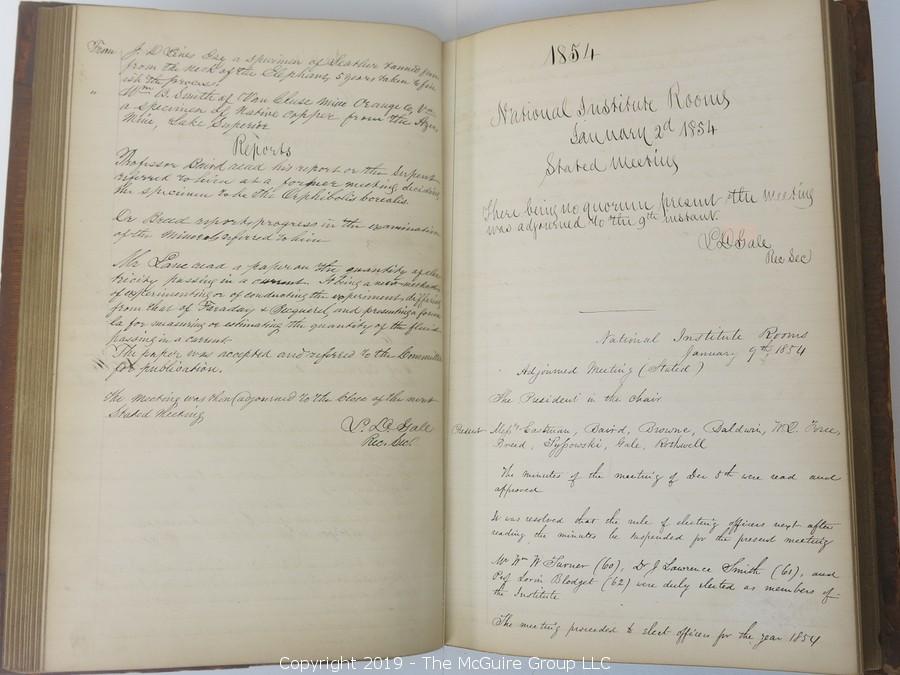 From J. D. Lines Esq a specimen of Leather tanned from
from the neck of the Elephant, 5 years taken to fin
ish the process
" Wm B. Smith of Van Cluse Mine Orange Co, Va
a specimen of Native Copper from the
Mine, Lake Superior
Reports
Professor Baird read his report on the Serpent
referred to him at a former meeting deciding
the specimen to be the Orphibolis borealis.
Dr Breed report progress in the examination
of the Minerals referred to him
Mr Lane read a paper on the quantity of elec
tricity passing in a current. It being a new method
of experimenting or of conducting the experiment, differing
from that of Faraday & Bequerel, and presenting a formu
la for measuring or estimating the quantity of the fluid
passing in a current
The paper was accepted and referred to the Committee
for publication.
The meeting was then adjourned to the close of the next
Stated Meeting
L. D. Gale
Rec. Sec.
1854
National Institute Rooms
January 2d 1854
Stated Meeting
There being no quorum present the meeting
was adjourned to the 9th instant.
L D Gale
Rec Sec
National Institute Rooms
January 9th 1854
Adjourned Meeting (Stated)
The President in the chair
Present Messrs Eastman, Baird, Browne, Baldwin, W. Q. Force,
Breed, Tyssowski, Gale, Rothwell
The minutes of the meeting of Dec 5th were read and
approved
It was resolved that the rule of electing officers next after
reading the minutes be suspended for the present meeting
Mr Wm W Turner (60), Dr J Lawrence Smith (61), and
Prof Lorin Blodget (62) were duly elected as members of
the Institute
The meeting proceeded to elect officers for the year 1854
Copyright 2019 - The McGuire Group LLC